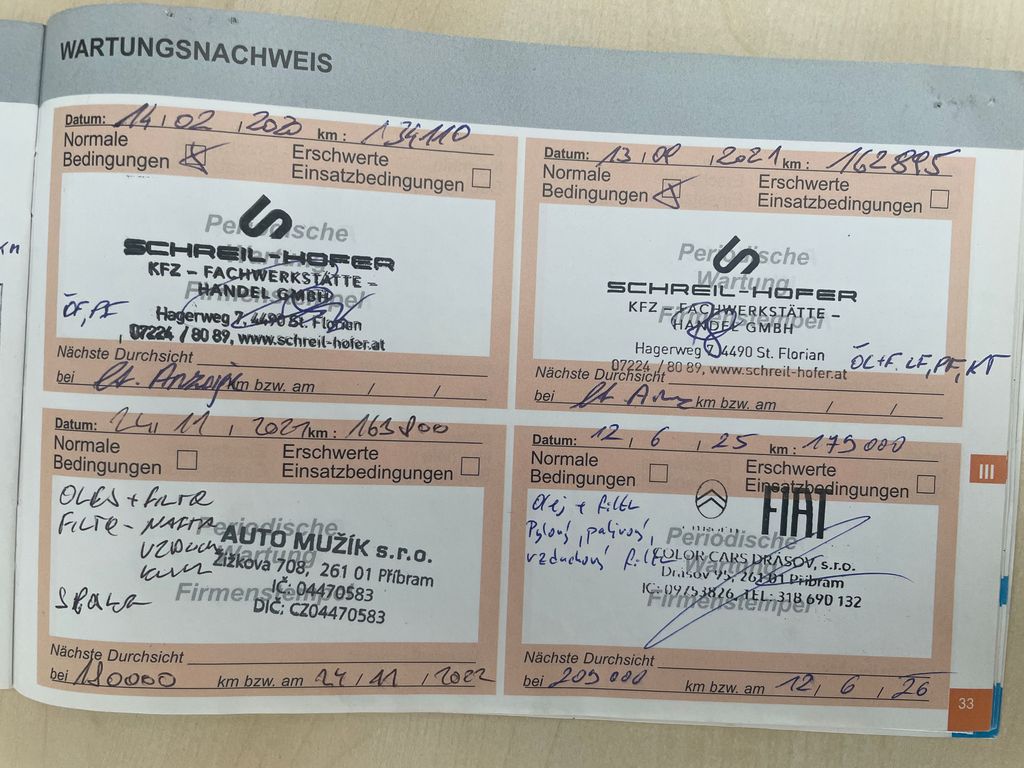 WARTUNGSNACHWEIS
Datum: 14, 02, 2020 km: 134110
Normale Bedingungen
Erschwerte Einsatzbedingungen
Periodische
SCHREIL-HOFER
KFZ – FACHWERKSTÄTTE –
HANDEL GMBH
Firmenstempel
ÖF, PF
Hagerweg 7, 4490 St. Florian
07224 / 80 89, www.schreil-hofer.at
Nächste Durchsicht
bei lt. Anzeige km bzw. am / /
Datum: 13, , 2021 km: 162895
Normale Bedingungen
Erschwerte Einsatzbedingungen
Periodische
Wartung
SCHREIL-HOFER
KFZ – FACHWERKSTÄTTE –
HANDEL GMBH
Firmenstempel
Hagerweg 7, 4490 St. Florian
07224 / 80 89, www.schreil-hofer.at
ÖL+F, LF, PF, KT
Nächste Durchsicht
bei lt. Anz km bzw. am / /
Datum: 24, 11, 2021 km: 163800
Normale Bedingungen
Erschwerte Einsatzbedingungen
OLEJ + FILTR
FILTR - NAFTA
VZDUCH
Periodische
Wartung
Firmenstempel
AUTO MUŽÍK s.r.o.
Žižkova 708, 261 01 Příbram
IČ: 04470583
DIČ: CZ04470583
Nächste Durchsicht
bei 190000 km bzw. am 24, 11, 2022
Datum: 12, 6, 25 km: 179000
Normale Bedingungen
Erschwerte Einsatzbedingungen
Olej + filtr
Pylový, palivový,
vzduchový filtr
CITROËN FIAT
Periodische
Wartung
Firmenstempel
COLOR CARS DRÁSOV, s.r.o.
Drásov 95, 261 01 Příbram
IČ: 09753826, TEL: 318 690 132
Nächste Durchsicht
bei 209000 km bzw. am 12, 6, 26
III
33